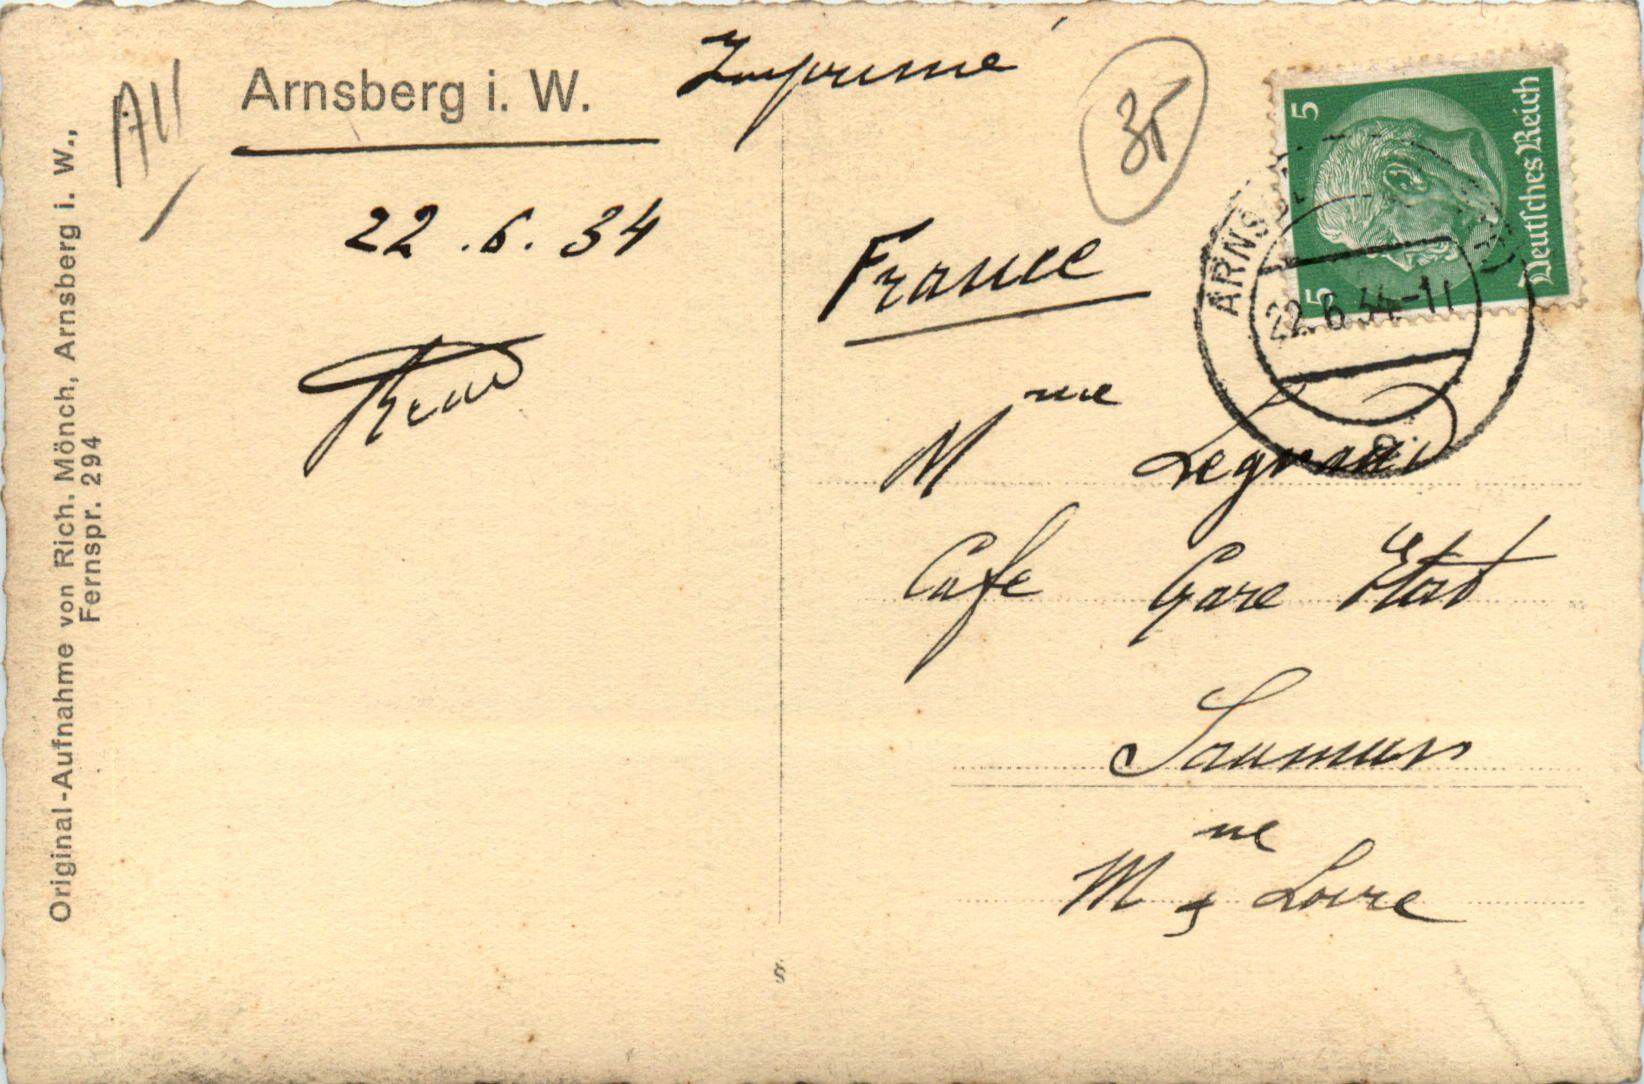 Arnsberg i. W.
22.6.34
Original-Aufnahme von Rich. Mönch, Arnsberg i. W.,
Fernspr. 294
All
Imprimé
35
5
5
Deutsches Reich
ARNSBERG
22.6.34-11
France
Mme
Cafe Gare Etat
Saumur
M ne & Loire